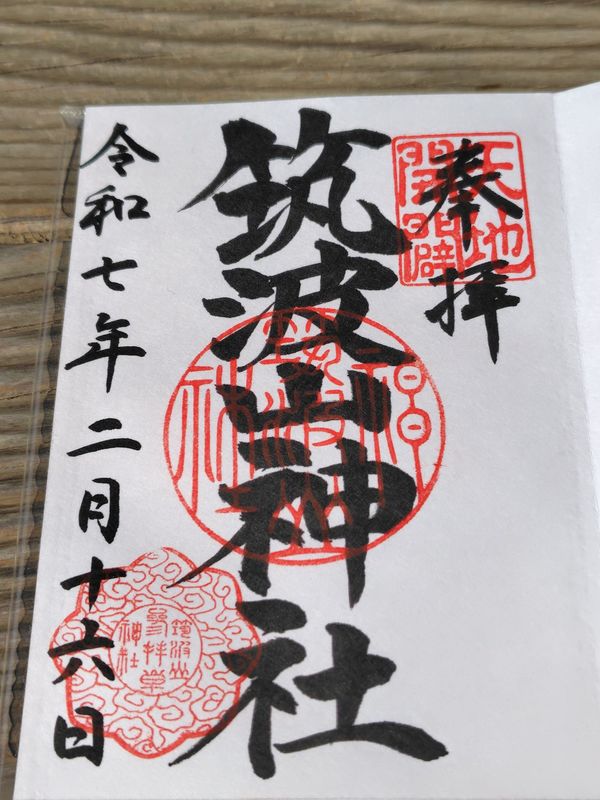 奉拝
天地
開闢
筑波山神社
筑波山
神社
筑波山
参拝章
神社
令和七年二月十六日